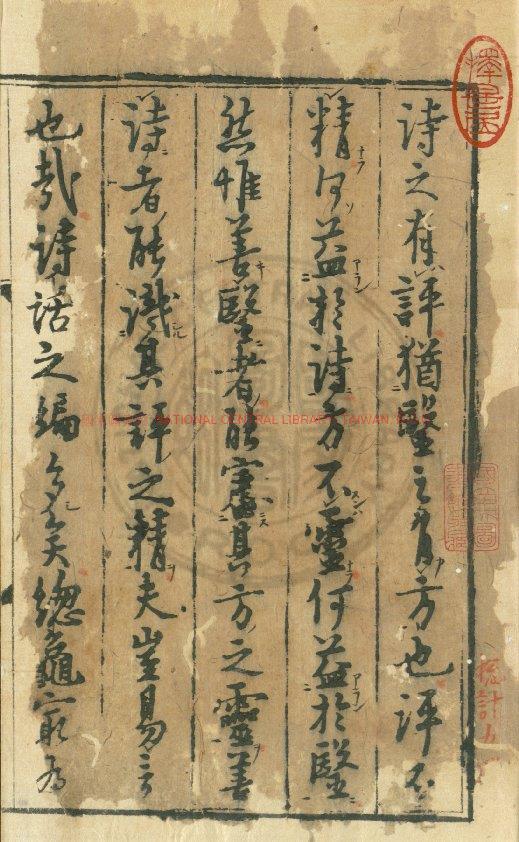 詩之有評猶醫之有方也評不
精何益於詩方不靈何益於醫
然惟善醫者能審其方之靈善
詩者能識其評之精夫豈易言
也哉詩話之編多矣總龜最為
擇是居
NATIONAL CENTRAL LIBRARY, TAIWAN